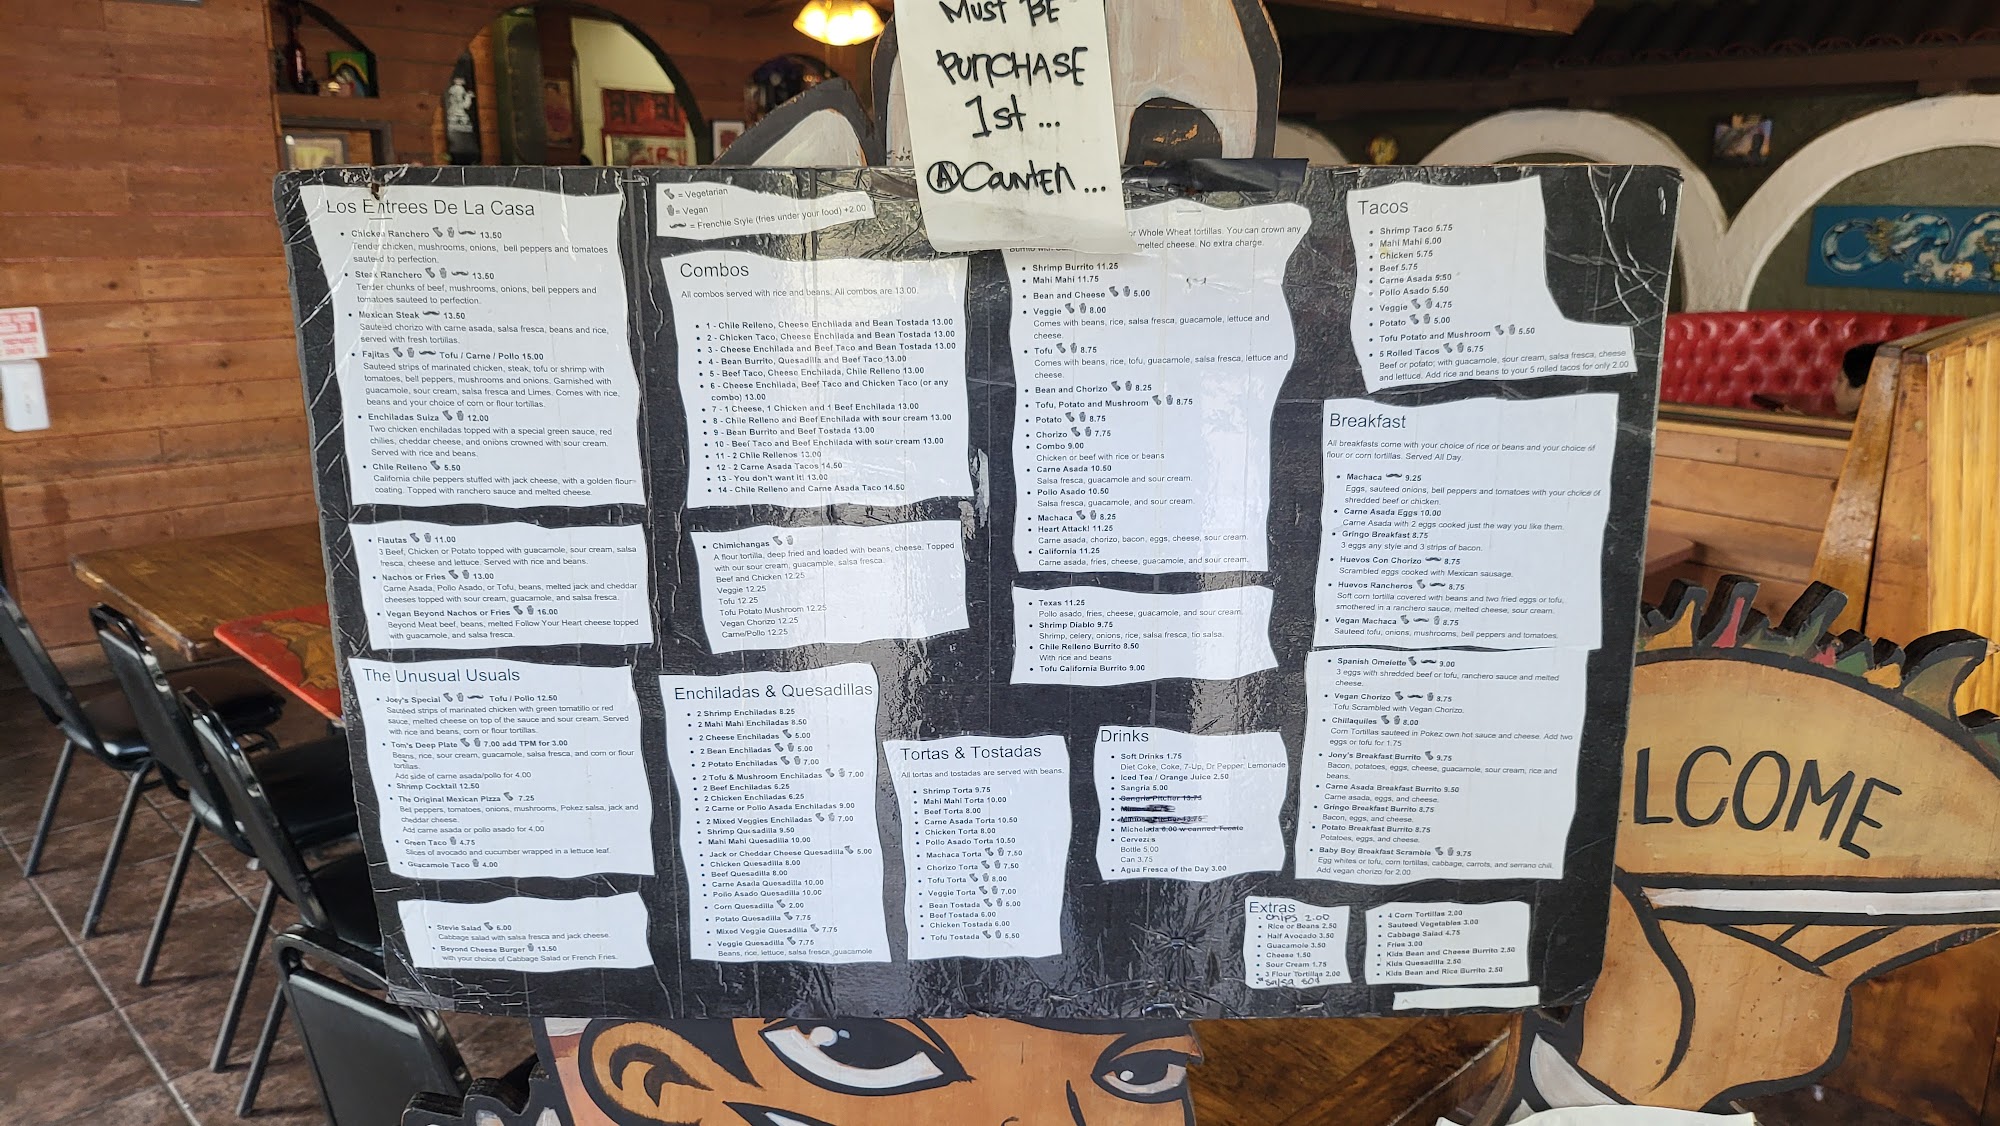 MUST BE
PURCHASE
1st ...
@Counter ...
Los Entrees De La Casa
Chicken Ranchero 13.50
Tender chicken, mushrooms, onions, bell peppers and tomatoes
sauteed to perfection.
Steak Ranchero 13.50
Tender chunks of beef, mushrooms, onions, bell peppers and
tomatoes sauteed to perfection.
Mexican Steak 13.50
Sauteed chorizo with carne asada, salsa fresca, beans and rice,
served with fresh tortillas.
Fajitas Tofu / Carne / Pollo 15.00
Sauteed strips of marinated chicken, steak, tofu or shrimp with
tomatoes, bell peppers, mushrooms and onions. Garnished with
guacamole, sour cream, salsa fresca and Limes. Comes with rice,
beans and your choice of corn or flour tortillas.
Enchiladas Suiza 12.00
Two chicken enchiladas topped with a special green sauce, red
chilies, cheddar cheese, and onions crowned with sour cream.
Served with rice and beans.
Chile Relleno 5.50
California chile peppers stuffed with jack cheese, with a golden flour
coating. Topped with ranchero sauce and melted cheese.
Flautas 11.00
3 Beef, Chicken or Potato topped with guacamole, sour cream, salsa
fresca, cheese and lettuce. Served with rice and beans.
Nachos or Fries 13.00
Carne Asada, Pollo Asado, or Tofu, beans, melted jack and cheddar
cheeses topped with sour cream, guacamole, and salsa fresca.
Vegan Beyond Nachos or Fries 16.00
Beyond Meat beef, beans, melted Follow Your Heart cheese topped
with guacamole, and salsa fresca.
The Unusual Usuals
Joey's Special Tofu / Pollo 12.50
Sauteed strips of marinated chicken with green tomatillo or red
sauce, melted cheese on top of the sauce and sour cream. Served
with rice and beans, corn or flour tortillas.
Tom's Deep Plate 7.00 add TPM for 3.00
Beans, rice, sour cream, guacamole, salsa fresca, and corn or flour
tortillas.
Add side of carne asada/pollo for 4.00
Shrimp Cocktail 12.50
The Original Mexican Pizza 7.25
Bell peppers, tomatoes, onions, mushrooms, Pokez salsa, jack and
cheddar cheese.
Add carne asada or pollo asado for 4.00
Green Taco 4.75
Slices of avocado and cucumber wrapped in a lettuce leaf.
Guacamole Taco 4.00
Stevie Salad 6.00
Cabbage salad with salsa fresca and jack cheese.
Beyond Cheese Burger 13.50
with your choice of Cabbage Salad or French Fries.
= Vegetarian
= Vegan
= Frenchie Style (fries under your food) +2.00
Combos
All combos served with rice and beans. All combos are 13.00.
1 - Chile Relleno, Cheese Enchilada and Bean Tostada 13.00
2 - Chicken Taco, Cheese Enchilada and Bean Tostada 13.00
3 - Cheese Enchilada and Beef Taco and Bean Tostada 13.00
4 - Bean Burrito, Quesadilla and Beef Taco 13.00
5 - Beef Taco, Cheese Enchilada, Chile Relleno 13.00
6 - Cheese Enchilada, Beef Taco and Chicken Taco (or any
combo) 13.00
7 - 1 Cheese, 1 Chicken and 1 Beef Enchilada 13.00
8 - Chile Relleno and Beef Enchilada with sour cream 13.00
9 - Bean Burrito and Beef Tostada 13.00
10 - Beef Taco and Beef Enchilada with sour cream 13.00
11 - 2 Chile Rellenos 13.00
12 - 2 Carne Asada Tacos 14.50
13 - You don't want it! 13.00
14 - Chile Relleno and Carne Asada Taco 14.50
Chimichangas
A flour tortilla, deep fried and loaded with beans, cheese. Topped
with our sour cream, guacamole, salsa fresca.
Beef and Chicken 12.25
Veggie 12.25
Tofu 12.25
Tofu Potato Mushroom 12.25
Vegan Chorizo 12.25
Carne/Pollo 12.25
Enchiladas & Quesadillas
2 Shrimp Enchiladas 8.25
2 Mahi Mahi Enchiladas 8.50
2 Cheese Enchiladas 5.00
2 Bean Enchiladas 5.00
2 Potato Enchiladas 7.00
2 Tofu & Mushroom Enchiladas 7.00
2 Beef Enchiladas 6.25
2 Chicken Enchiladas 6.25
2 Carne or Pollo Asada Enchiladas 9.00
2 Mixed Veggies Enchiladas 7.00
Shrimp Quesadilla 9.50
Mahi Mahi Quesadilla 10.00
Jack or Cheddar Cheese Quesadilla 5.00
Chicken Quesadilla 8.00
Beef Quesadilla 8.00
Carne Asada Quesadilla 10.00
Pollo Asado Quesadilla 10.00
Corn Quesadilla 2.00
Potato Quesadilla 7.75
Mixed Veggie Quesadilla 7.75
Veggie Quesadilla 7.75
Beans, rice, lettuce, salsa fresca, guacamole
Tortas & Tostadas
All tortas and tostadas are served with beans.
Shrimp Torta 9.75
Mahi Mahi Torta 10.00
Beef Torta 8.00
Carne Asada Torta 10.50
Chicken Torta 8.00
Pollo Asado Torta 10.50
Machaca Torta 7.50
Chorizo Torta 7.50
Tofu Torta 8.00
Veggie Torta 7.00
Bean Tostada 5.00
Beef Tostada 6.00
Chicken Tostada 6.00
Tofu Tostada 5.50
or Whole Wheat tortillas. You can crown any
melted cheese. No extra charge.
Shrimp Burrito 11.25
Mahi Mahi 11.75
Bean and Cheese 5.00
Veggie 8.00
Comes with beans, rice, salsa fresca, guacamole, lettuce and
cheese.
Tofu 8.75
Comes with beans, rice, tofu, guacamole, salsa fresca, lettuce and
cheese.
Bean and Chorizo 8.25
Tofu, Potato and Mushroom 8.75
Potato 8.75
Chorizo 7.75
Combo 9.00
Chicken or beef with rice or beans
Carne Asada 10.50
Salsa fresca, guacamole and sour cream.
Pollo Asado 10.50
Salsa fresca, guacamole, and sour cream.
Machaca 8.25
Heart Attack! 11.25
Carne asada, chorizo, bacon, eggs, cheese, sour cream.
California 11.25
Carne asada, fries, cheese, guacamole, and sour cream.
Texas 11.25
Pollo asado, fries, cheese, guacamole, and sour cream.
Shrimp Diablo 9.75
Shrimp, celery, onions, rice, salsa fresca, tio salsa.
Chile Relleno Burrito 8.50
With rice and beans
Tofu California Burrito 9.00
Drinks
Soft Drinks 1.75
Diet Coke, Coke, 7-Up, Dr Pepper, Lemonade
Iced Tea / Orange Juice 2.50
Sangria 5.00
Sangria Pitcher 13.75
Michelada 6.00 w canned Tecate
Cervezas
Bottle 5.00
Can 3.75
Agua Fresca of the Day 3.00
Tacos
Shrimp Taco 5.75
Mahi Mahi 6.00
Chicken 5.75
Beef 5.75
Carne Asada 5.50
Pollo Asado 5.50
Veggie 4.75
Potato 5.00
Tofu Potato and Mushroom 5.50
5 Rolled Tacos 6.75
Beef or potato; with guacamole, sour cream, salsa fresca, cheese
and lettuce. Add rice and beans to your 5 rolled tacos for only 2.00
Breakfast
All breakfasts come with your choice of rice or beans and your choice of
flour or corn tortillas. Served All Day.
Machaca 9.25
Eggs, sauteed onions, bell peppers and tomatoes with your choice of
shredded beef or chicken.
Carne Asada Eggs 10.00
Carne Asada with 2 eggs cooked just the way you like them.
Gringo Breakfast 8.75
3 eggs any style and 3 strips of bacon.
Huevos Con Chorizo 8.75
Scrambled eggs cooked with Mexican sausage.
Huevos Rancheros 8.75
Soft corn tortilla covered with beans and two fried eggs or tofu,
smothered in a ranchero sauce, melted cheese, sour cream.
Vegan Machaca 8.75
Sauteed tofu, onions, mushrooms, bell peppers and tomatoes.
Spanish Omelette 9.00
3 eggs with shredded beef or tofu, ranchero sauce and melted
cheese.
Vegan Chorizo 8.75
Tofu Scrambled with Vegan Chorizo.
Chillaquiles 8.00
Corn Tortillas sauteed in Pokez own hot sauce and cheese. Add two
eggs or tofu for 1.75
Jony's Breakfast Burrito 9.75
Bacon, potatoes, eggs, cheese, guacamole, sour cream, rice and
beans.
Carne Asada Breakfast Burrito 9.50
Carne asada, eggs, and cheese.
Gringo Breakfast Burrito 8.75
Bacon, eggs, and cheese.
Potato Breakfast Burrito 8.75
Potatoes, eggs, and cheese.
Baby Boy Breakfast Scramble 9.75
Egg whites or tofu, corn tortillas, cabbage, carrots, and serrano chili.
Add vegan chorizo for 2.00
Extras
Chips 2.00
Rice or Beans 2.50
Half Avocado 3.50
Guacamole 3.50
Cheese 1.50
Sour Cream 1.75
3 Flour Tortillas 2.00
Salsa 50¢
4 Corn Tortillas 2.00
Sauteed Vegetables 3.00
Cabbage Salad 4.75
Fries 3.00
Kids Bean and Cheese Burrito 2.50
Kids Quesadilla 2.50
Kids Bean and Rice Burrito 2.50
LCOME